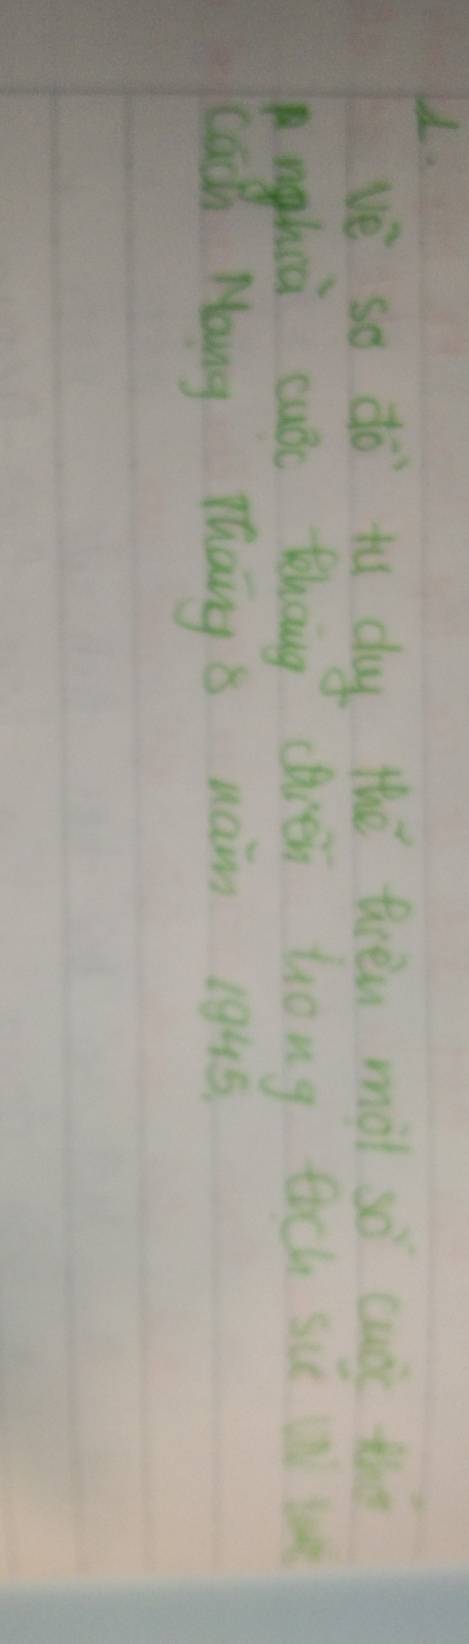 1.
Vẽ sơ đồ tư duy thể hiện một số cuộc
nghĩa cuộc kháng chiến trong lịch sử VN
Cách Mạng Tháng 8 năm 1945.